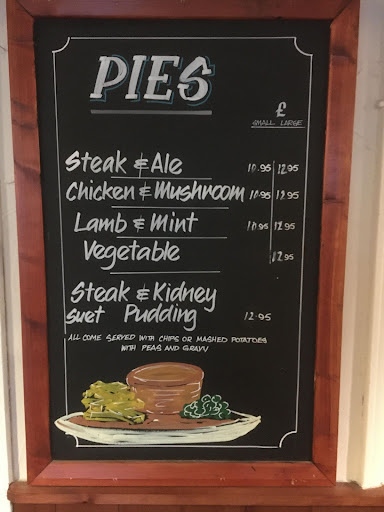 PIES
£
SMALL LARGE
Steak & Ale 10.95 12.95
Chicken & Mushroom 10.95 12.95
Lamb & Mint 10.95 12.95
Vegetable 12.95
Steak & Kidney
Suet Pudding 12.95
ALL COME SERVED WITH CHIPS OR MASHED POTATOES
WITH PEAS AND GRAVY